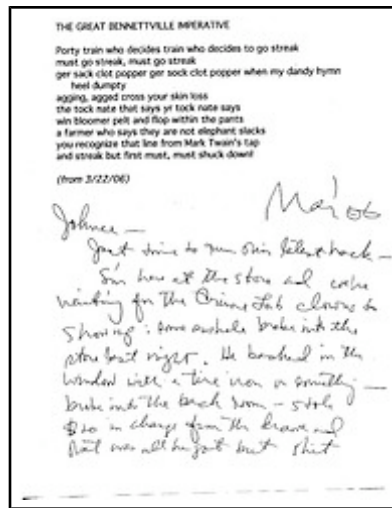 THE GREAT BENNETTVILLE IMPERATIVE
Porty train who decides train who decides to go streak
must go streak, must go streak
ger sack clot popper ger sock clot popper when my dandy hymn
heel dumpty
agging, agged cross your skin loss
the tock nate that says yr tock nate says
win bloomer pelt and flop within the pants
a farmer who says they are not elephant slacks
you recognize that line from Mark Twain's tap
and streak but first must, must shuck down!
(from 3/22/06)
Mar '06
Johnee —
Just time to run this letter back —
I'm here at the store and
waiting for the Crime Lab clowns to
showing: some asshole broke into the
store last night. He bashed in the
window with a tire iron or something —
broke into the back room – stole
$20 in change from the drawer and
that was all he got but shit